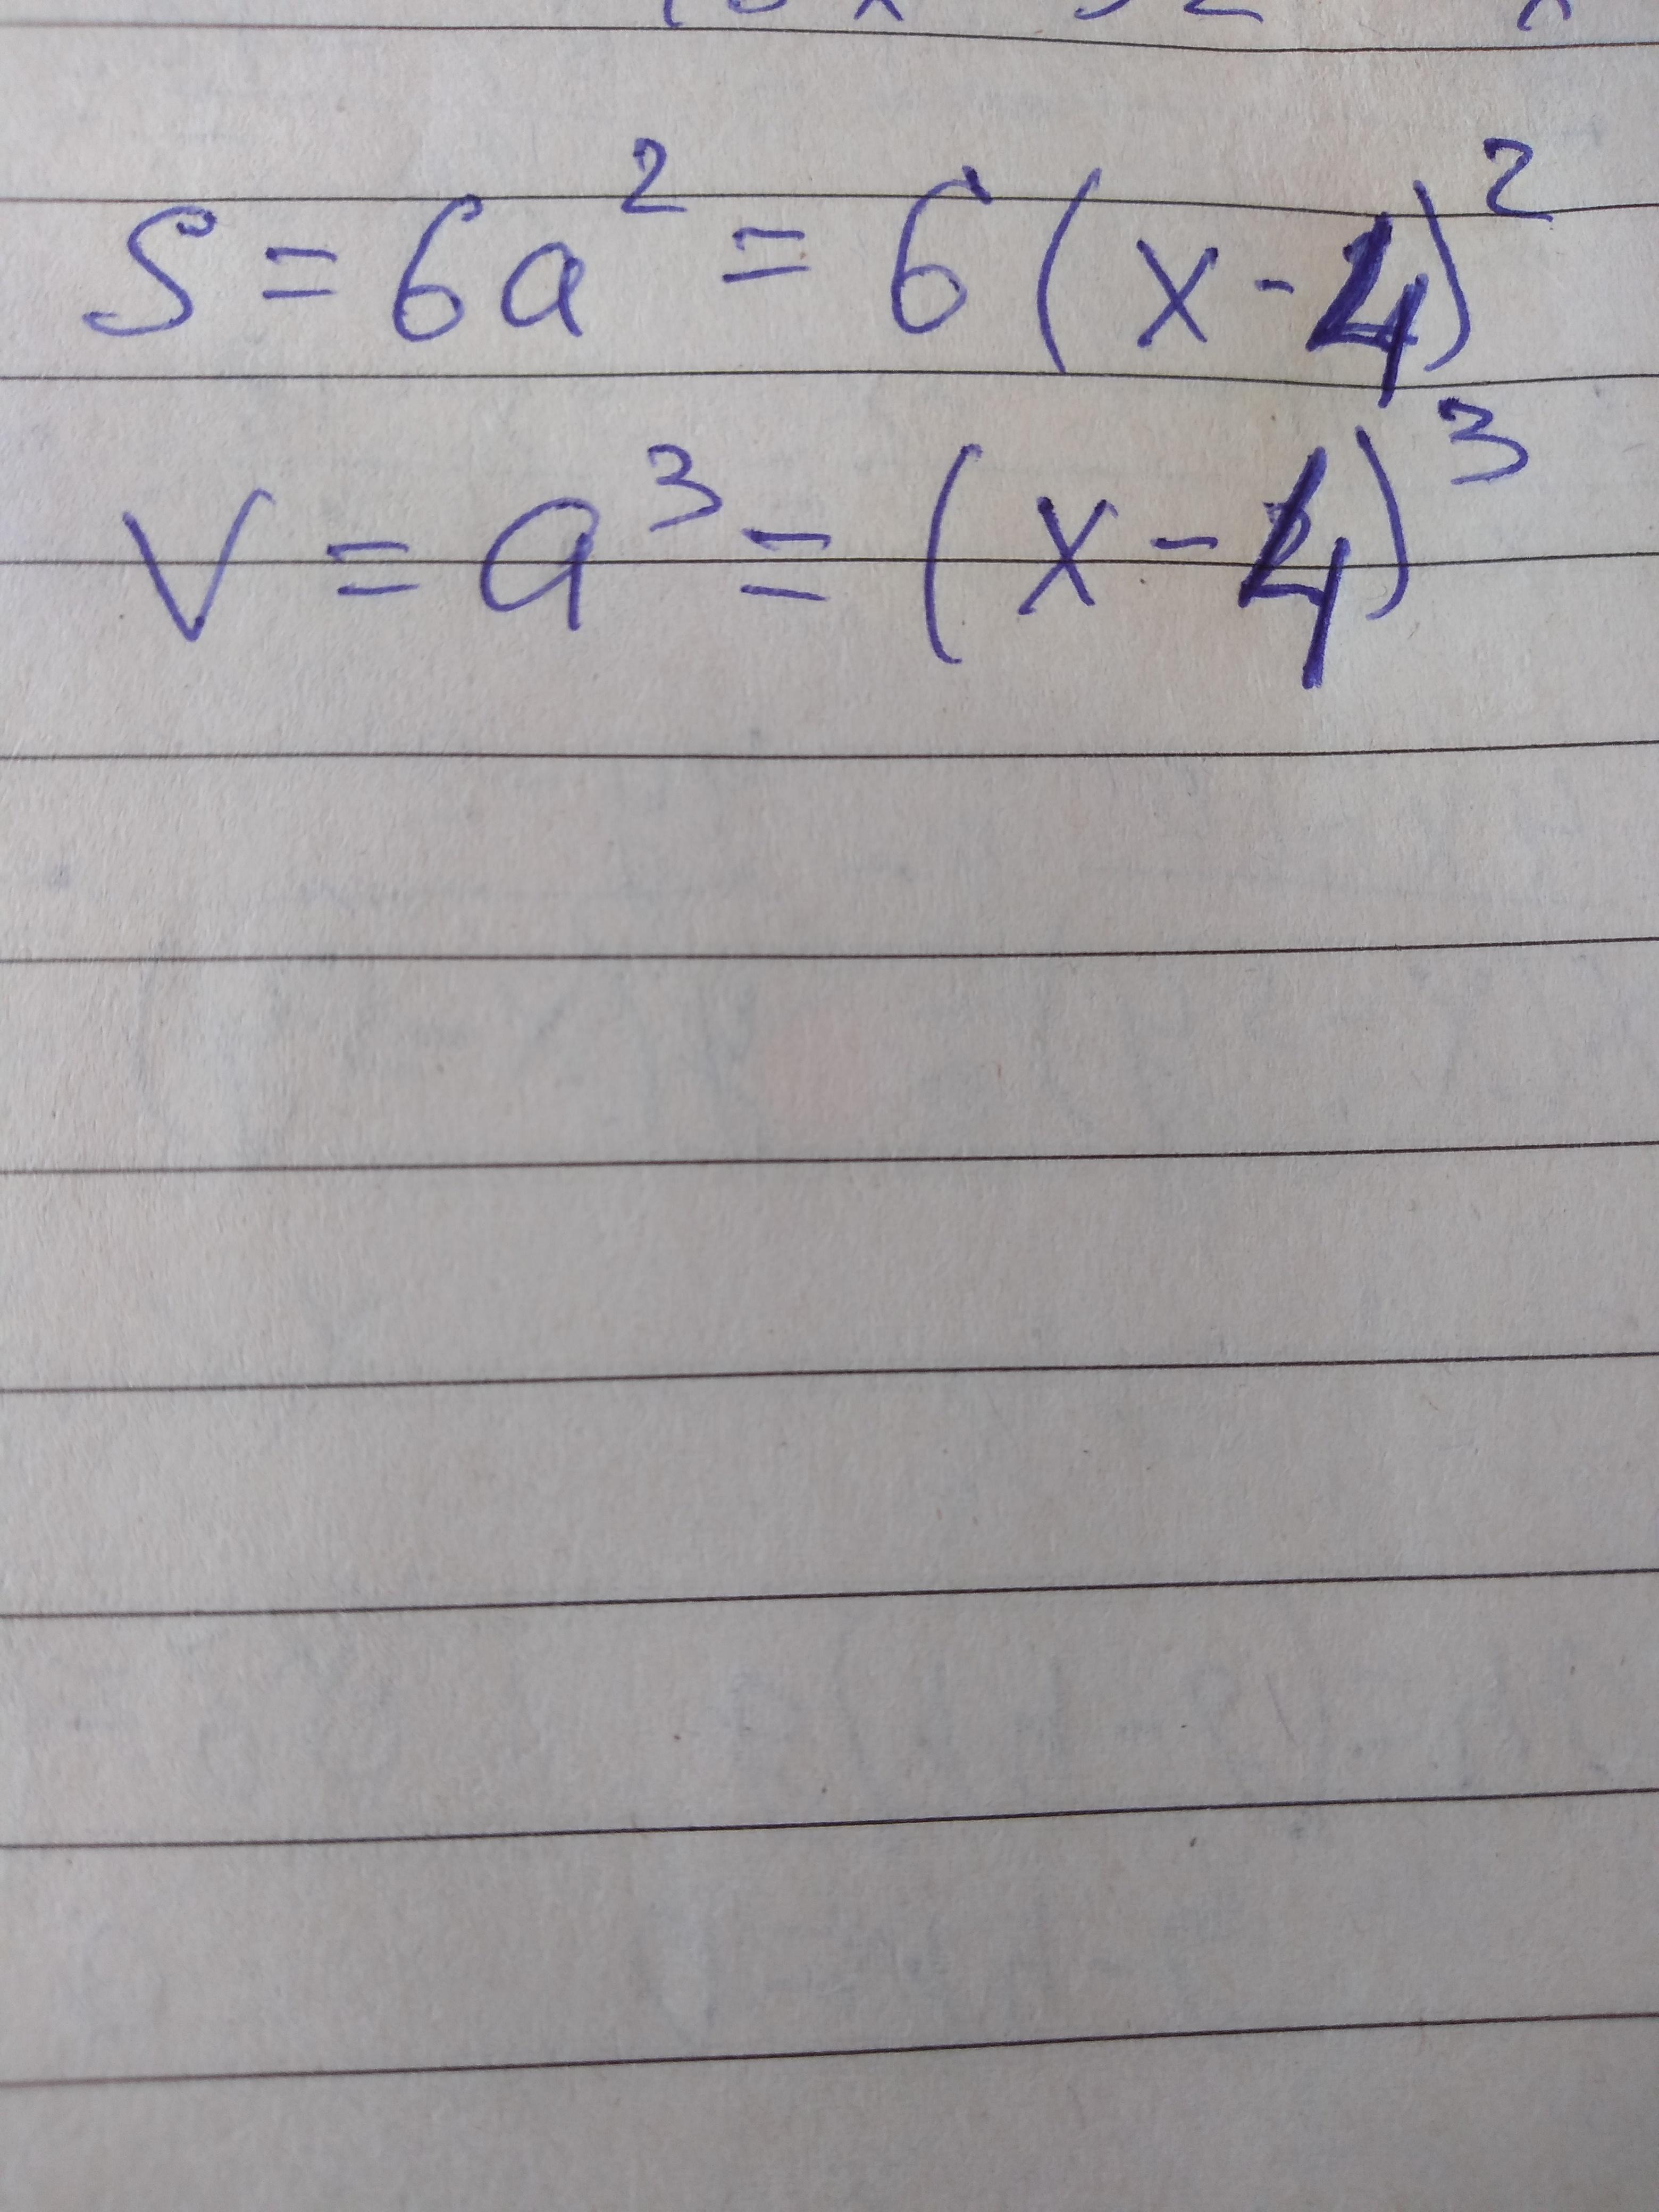 S = 6a² = 6(x-4)²
V = a³ = (x-4)³